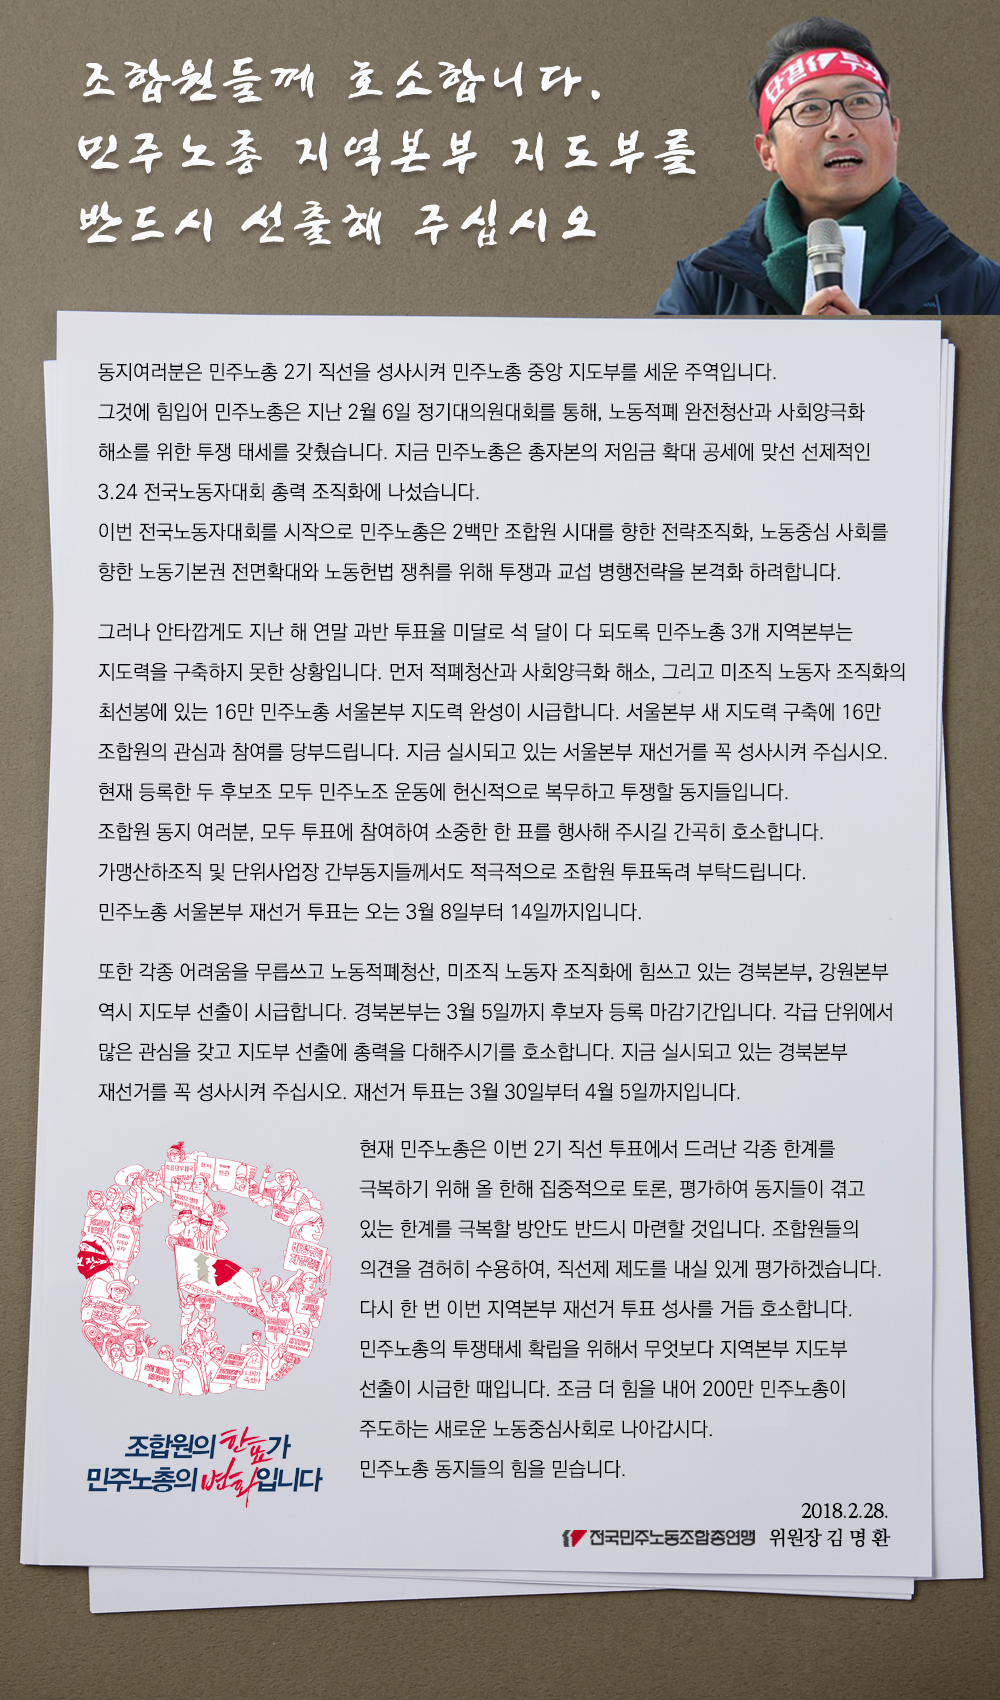 조합원들께 호소합니다.
민주노총 지역본부 지도부를
반드시 선출해 주십시오
단결 투쟁
동지여러분은 민주노총 2기 직선을 성사시켜 민주노총 중앙 지도부를 세운 주역입니다.
그것에 힘입어 민주노총은 지난 2월 6일 정기대의원대회를 통해, 노동적폐 완전청산과 사회양극화
해소를 위한 투쟁 태세를 갖췄습니다. 지금 민주노총은 총자본의 저임금 확대 공세에 맞선 선제적인
3.24 전국노동자대회 총력 조직화에 나섰습니다.
이번 전국노동자대회를 시작으로 민주노총은 2백만 조합원 시대를 향한 전략조직화, 노동중심 사회를
향한 노동기본권 전면확대와 노동헌법 쟁취를 위해 투쟁과 교섭 병행전략을 본격화 하려합니다.
그러나 안타깝게도 지난 해 연말 과반 투표율 미달로 석 달이 다 되도록 민주노총 3개 지역본부는
지도력을 구축하지 못한 상황입니다. 먼저 적폐청산과 사회양극화 해소, 그리고 미조직 노동자 조직화의
최선봉에 있는 16만 민주노총 서울본부 지도력 완성이 시급합니다. 서울본부 새 지도력 구축에 16만
조합원의 관심과 참여를 당부드립니다. 지금 실시되고 있는 서울본부 재선거를 꼭 성사시켜 주십시오.
현재 등록한 두 후보조 모두 민주노조 운동에 헌신적으로 복무하고 투쟁할 동지들입니다.
조합원 동지 여러분, 모두 투표에 참여하여 소중한 한 표를 행사해 주시길 간곡히 호소합니다.
가맹산하조직 및 단위사업장 간부동지들께서도 적극적으로 조합원 투표독려 부탁드립니다.
민주노총 서울본부 재선거 투표는 오는 3월 8일부터 14일까지입니다.
또한 각종 어려움을 무릅쓰고 노동적폐청산, 미조직 노동자 조직화에 힘쓰고 있는 경북본부, 강원본부
역시 지도부 선출이 시급합니다. 경북본부는 3월 5일까지 후보자 등록 마감기간입니다. 각급 단위에서
많은 관심을 갖고 지도부 선출에 총력을 다해주시기를 호소합니다. 지금 실시되고 있는 경북본부
재선거를 꼭 성사시켜 주십시오. 재선거 투표는 3월 30일부터 4월 5일까지입니다.
현재 민주노총은 이번 2기 직선 투표에서 드러난 각종 한계를
극복하기 위해 올 한해 집중적으로 토론, 평가하여 동지들이 겪고
있는 한계를 극복할 방안도 반드시 마련할 것입니다. 조합원들의
의견을 겸허히 수용하여, 직선제 제도를 내실 있게 평가하겠습니다.
다시 한 번 이번 지역본부 재선거 투표 성사를 거듭 호소합니다.
민주노총의 투쟁태세 확립을 위해서 무엇보다 지역본부 지도부
선출이 시급한 때입니다. 조금 더 힘을 내어 200만 민주노총이
주도하는 새로운 노동중심사회로 나아갑시다.
민주노총 동지들의 힘을 믿습니다.
조합원의 한표가
민주노총의 변화입니다
2018.2.28.
전국민주노동조합총연맹 위원장 김 명 환